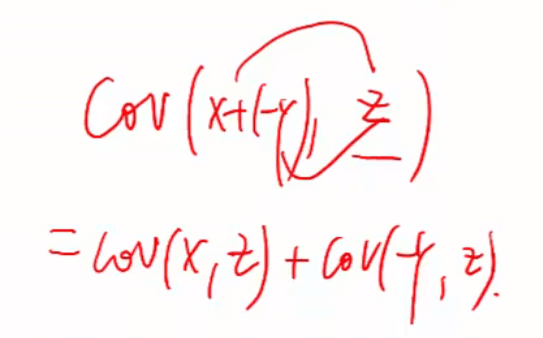 Cov(x+(-y), z)
=cov(x,z)+cov(-y,z).